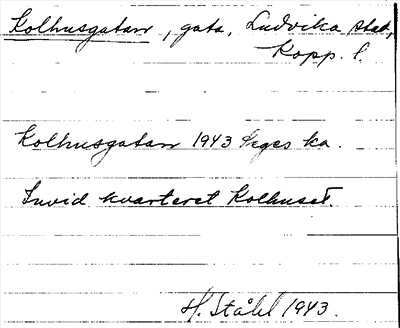 Kolhusgatan, gata, Ludvika stad,
Kopp. l.
Kolhusgatan 1943 ka.
Invid kvarteret Kolhuset.
H. Ståhl 1943.